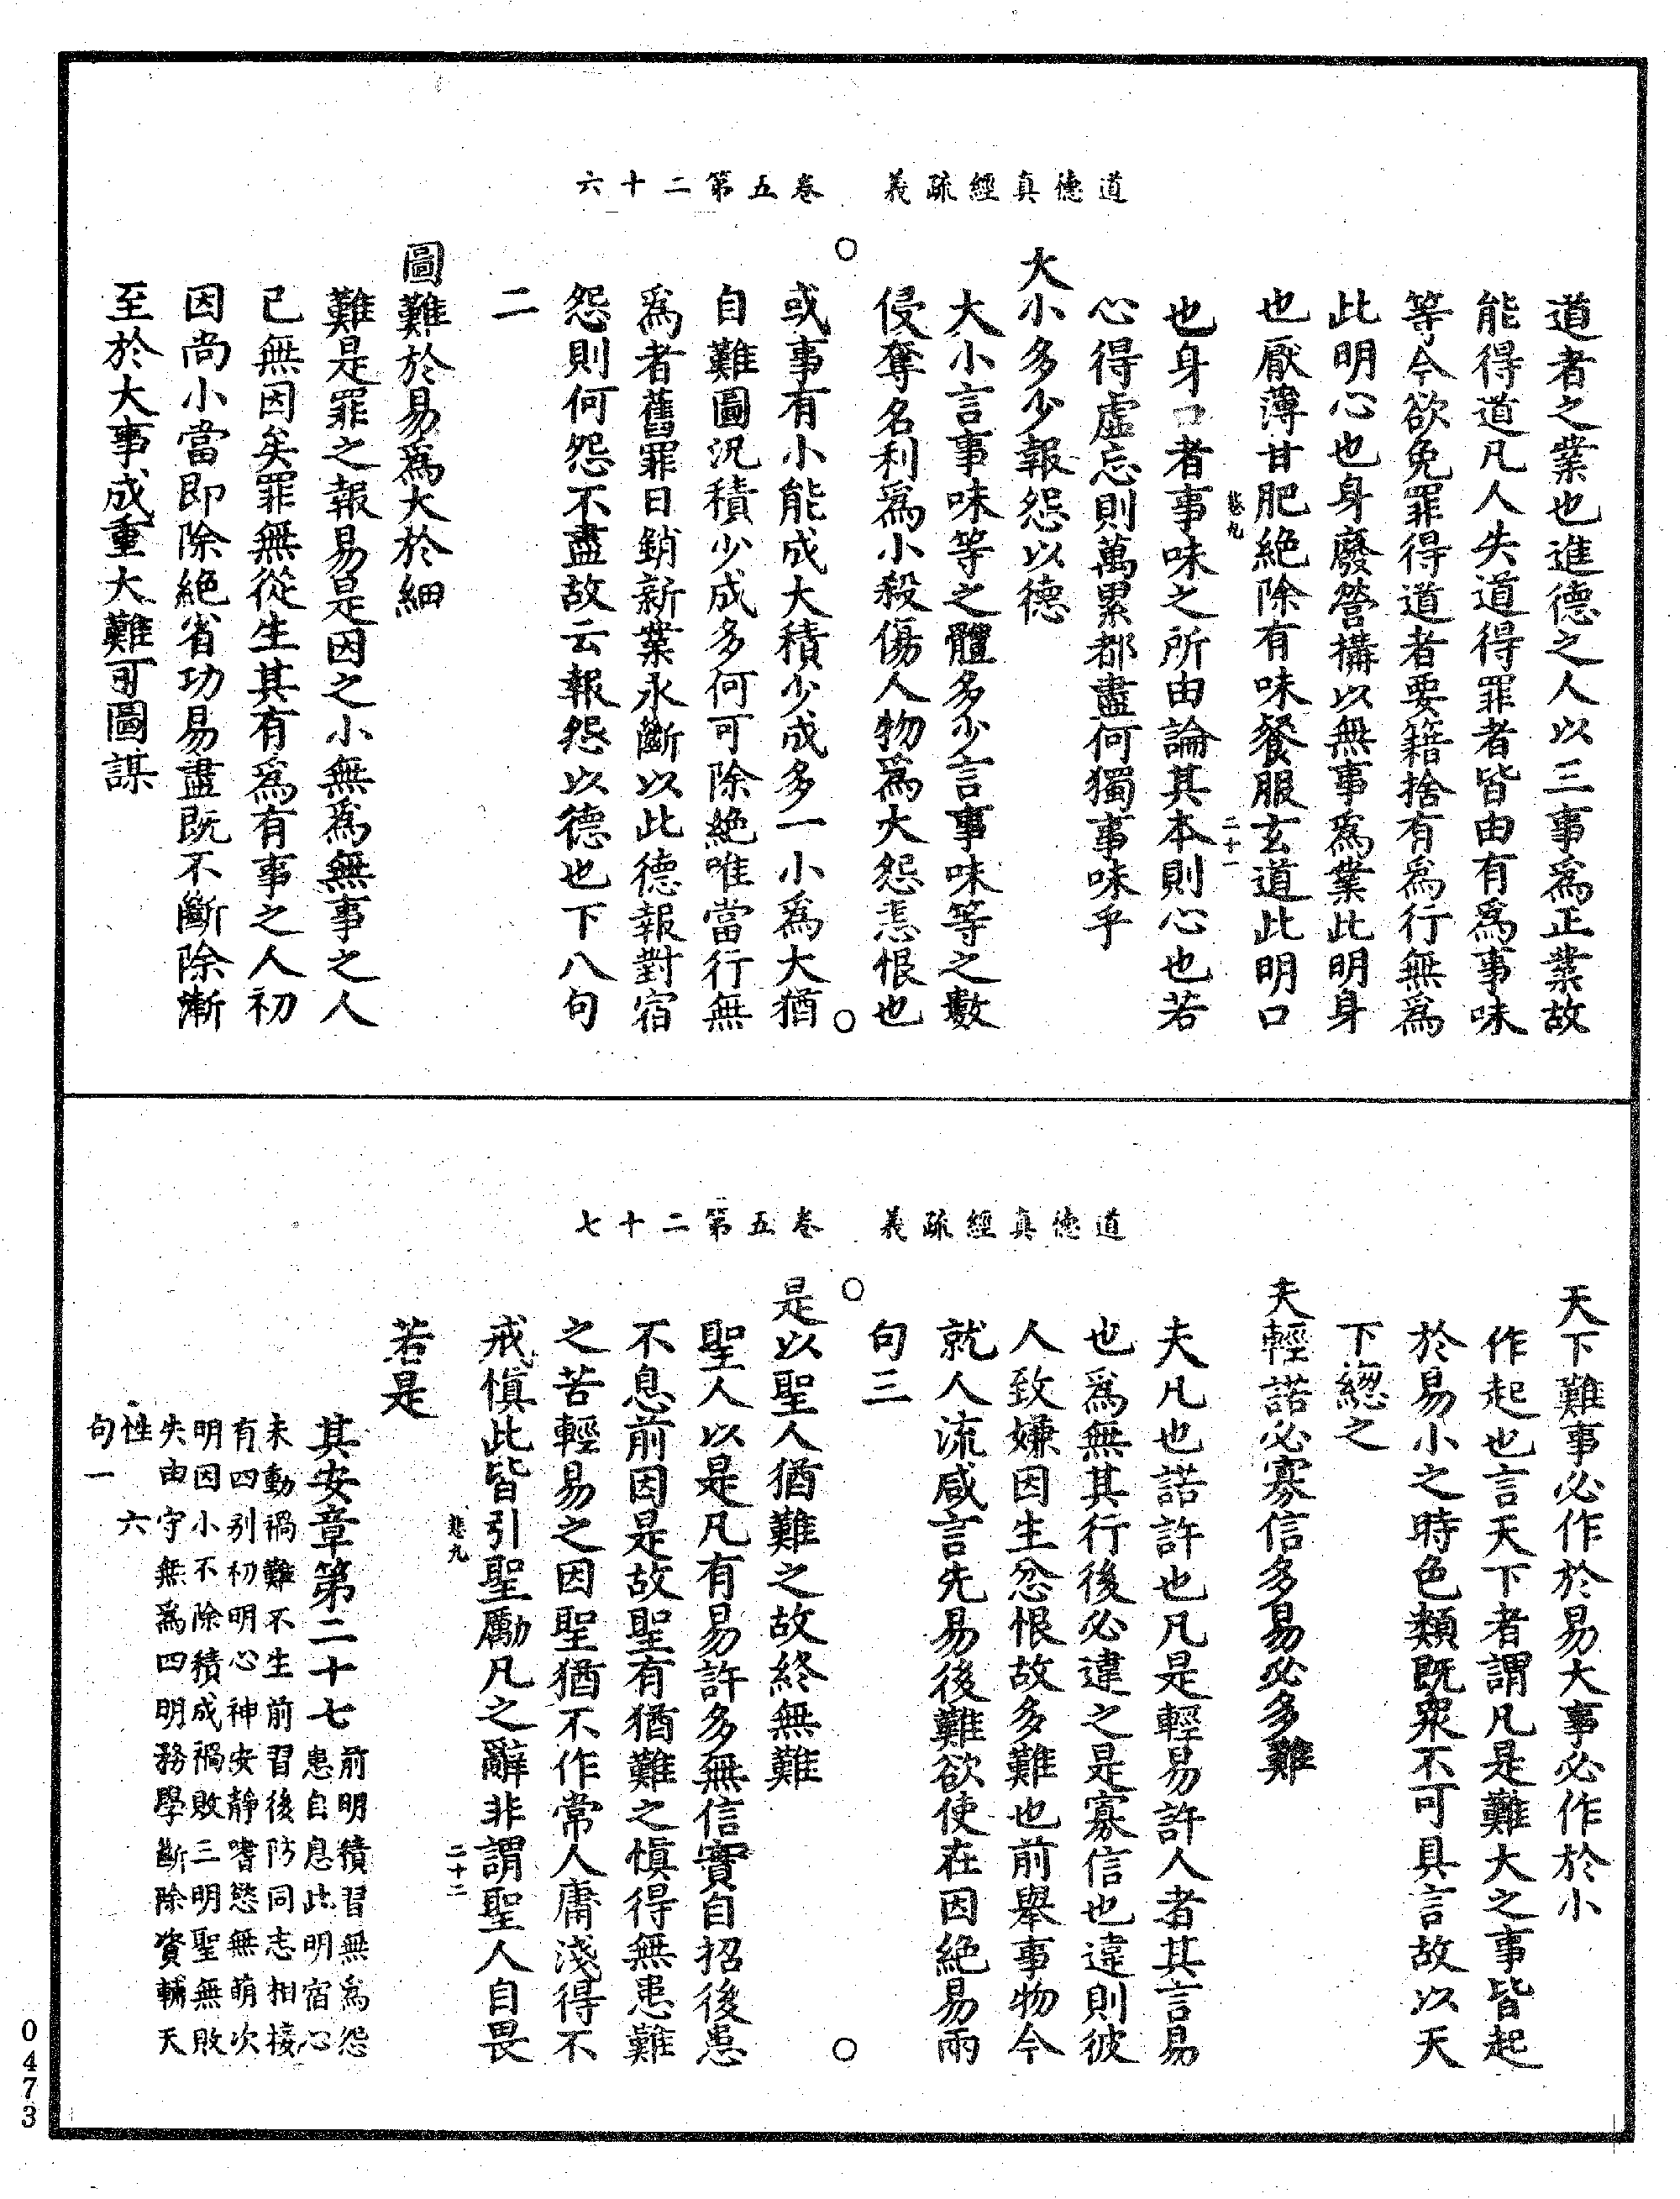 道德真經疏義　卷五第二十六
道者之業也進德之人以三事爲正業故
能得道凡人失道得罪者皆由有爲事味
等今欲免罪得道者要籍捨有爲行無爲
此明心也身廢營構以無事爲業此明身
也厭薄甘肥絶除有味餐服玄道此明口
悲九　二十一
也身口者事味之所由論其本則心也若
心得虛忘則萬累都盡何獨事味乎
大小多少報怨以德
大小言事味等之體多少言事味等之數
侵奪名利爲小殺傷人物爲大怨恚恨也
或事有小能成大積少成多一小爲大猶
自難圖況積少成多何可除絶唯當行無
爲者舊罪日銷新業永斷以此德報對宿
怨則何怨不盡故云報怨以德也下八句
二
圖難於易爲大於細
難是罪之報易是因之小無爲無事之人
已無因矣罪無從生其有爲有事之人初
因尚小當即除絶省功易盡既不斷除漸
至於大事成重大難可圖謀
道德真經疏義　卷五第二十七
天下難事必作於易大事必作於小
作起也言天下者謂凡是難大之事皆起
於易小之時色類既衆不可具言故以天
下緫之
夫輕諾必寡信多易必多難
夫凡也諾許也凡是輕易許人者其言易
也爲無其行後必違之是寡信也違則彼
人致嫌因生忿恨故多難也前舉事物今
就人流咸言先易後難欲使在因絶易兩
句三
是以聖人猶難之故終無難
聖人以是凡有易許多無信實自招後患
不息前因是故聖有猶難之愼得無患難
之苦輕易之因聖猶不作常人庸淺得不
戒愼此皆引聖勵凡之辭非謂聖人自畏
悲九　二十二
若是
其安章第二十七
前明積習無爲怨
患自息此明宿心
未動禍難不生前習後防同志相接
有四別初明心神安靜嗜慾無萌次
明因小不除積成禍敗三明聖無敗
失由守無爲四明務學斷除資輔天
性　六
句一
0473